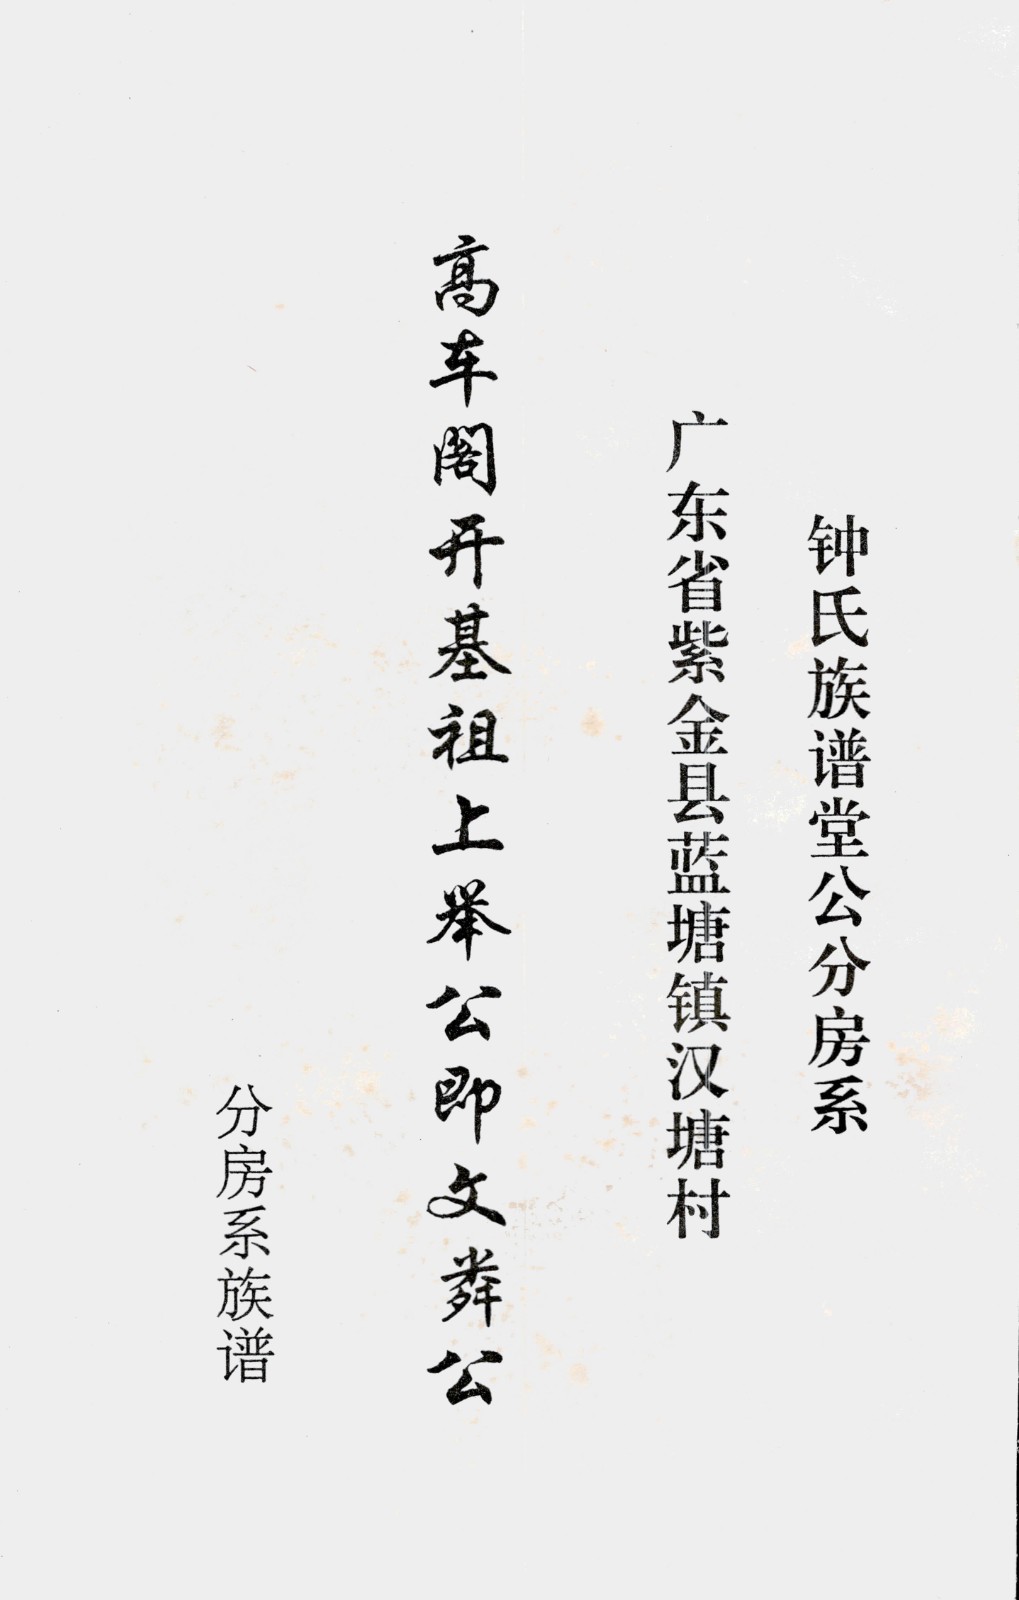 钟氏族谱堂公分房系
广东省紫金县蓝塘镇汉塘村
高车阁开基祖上举公即文粦公
分房系族谱